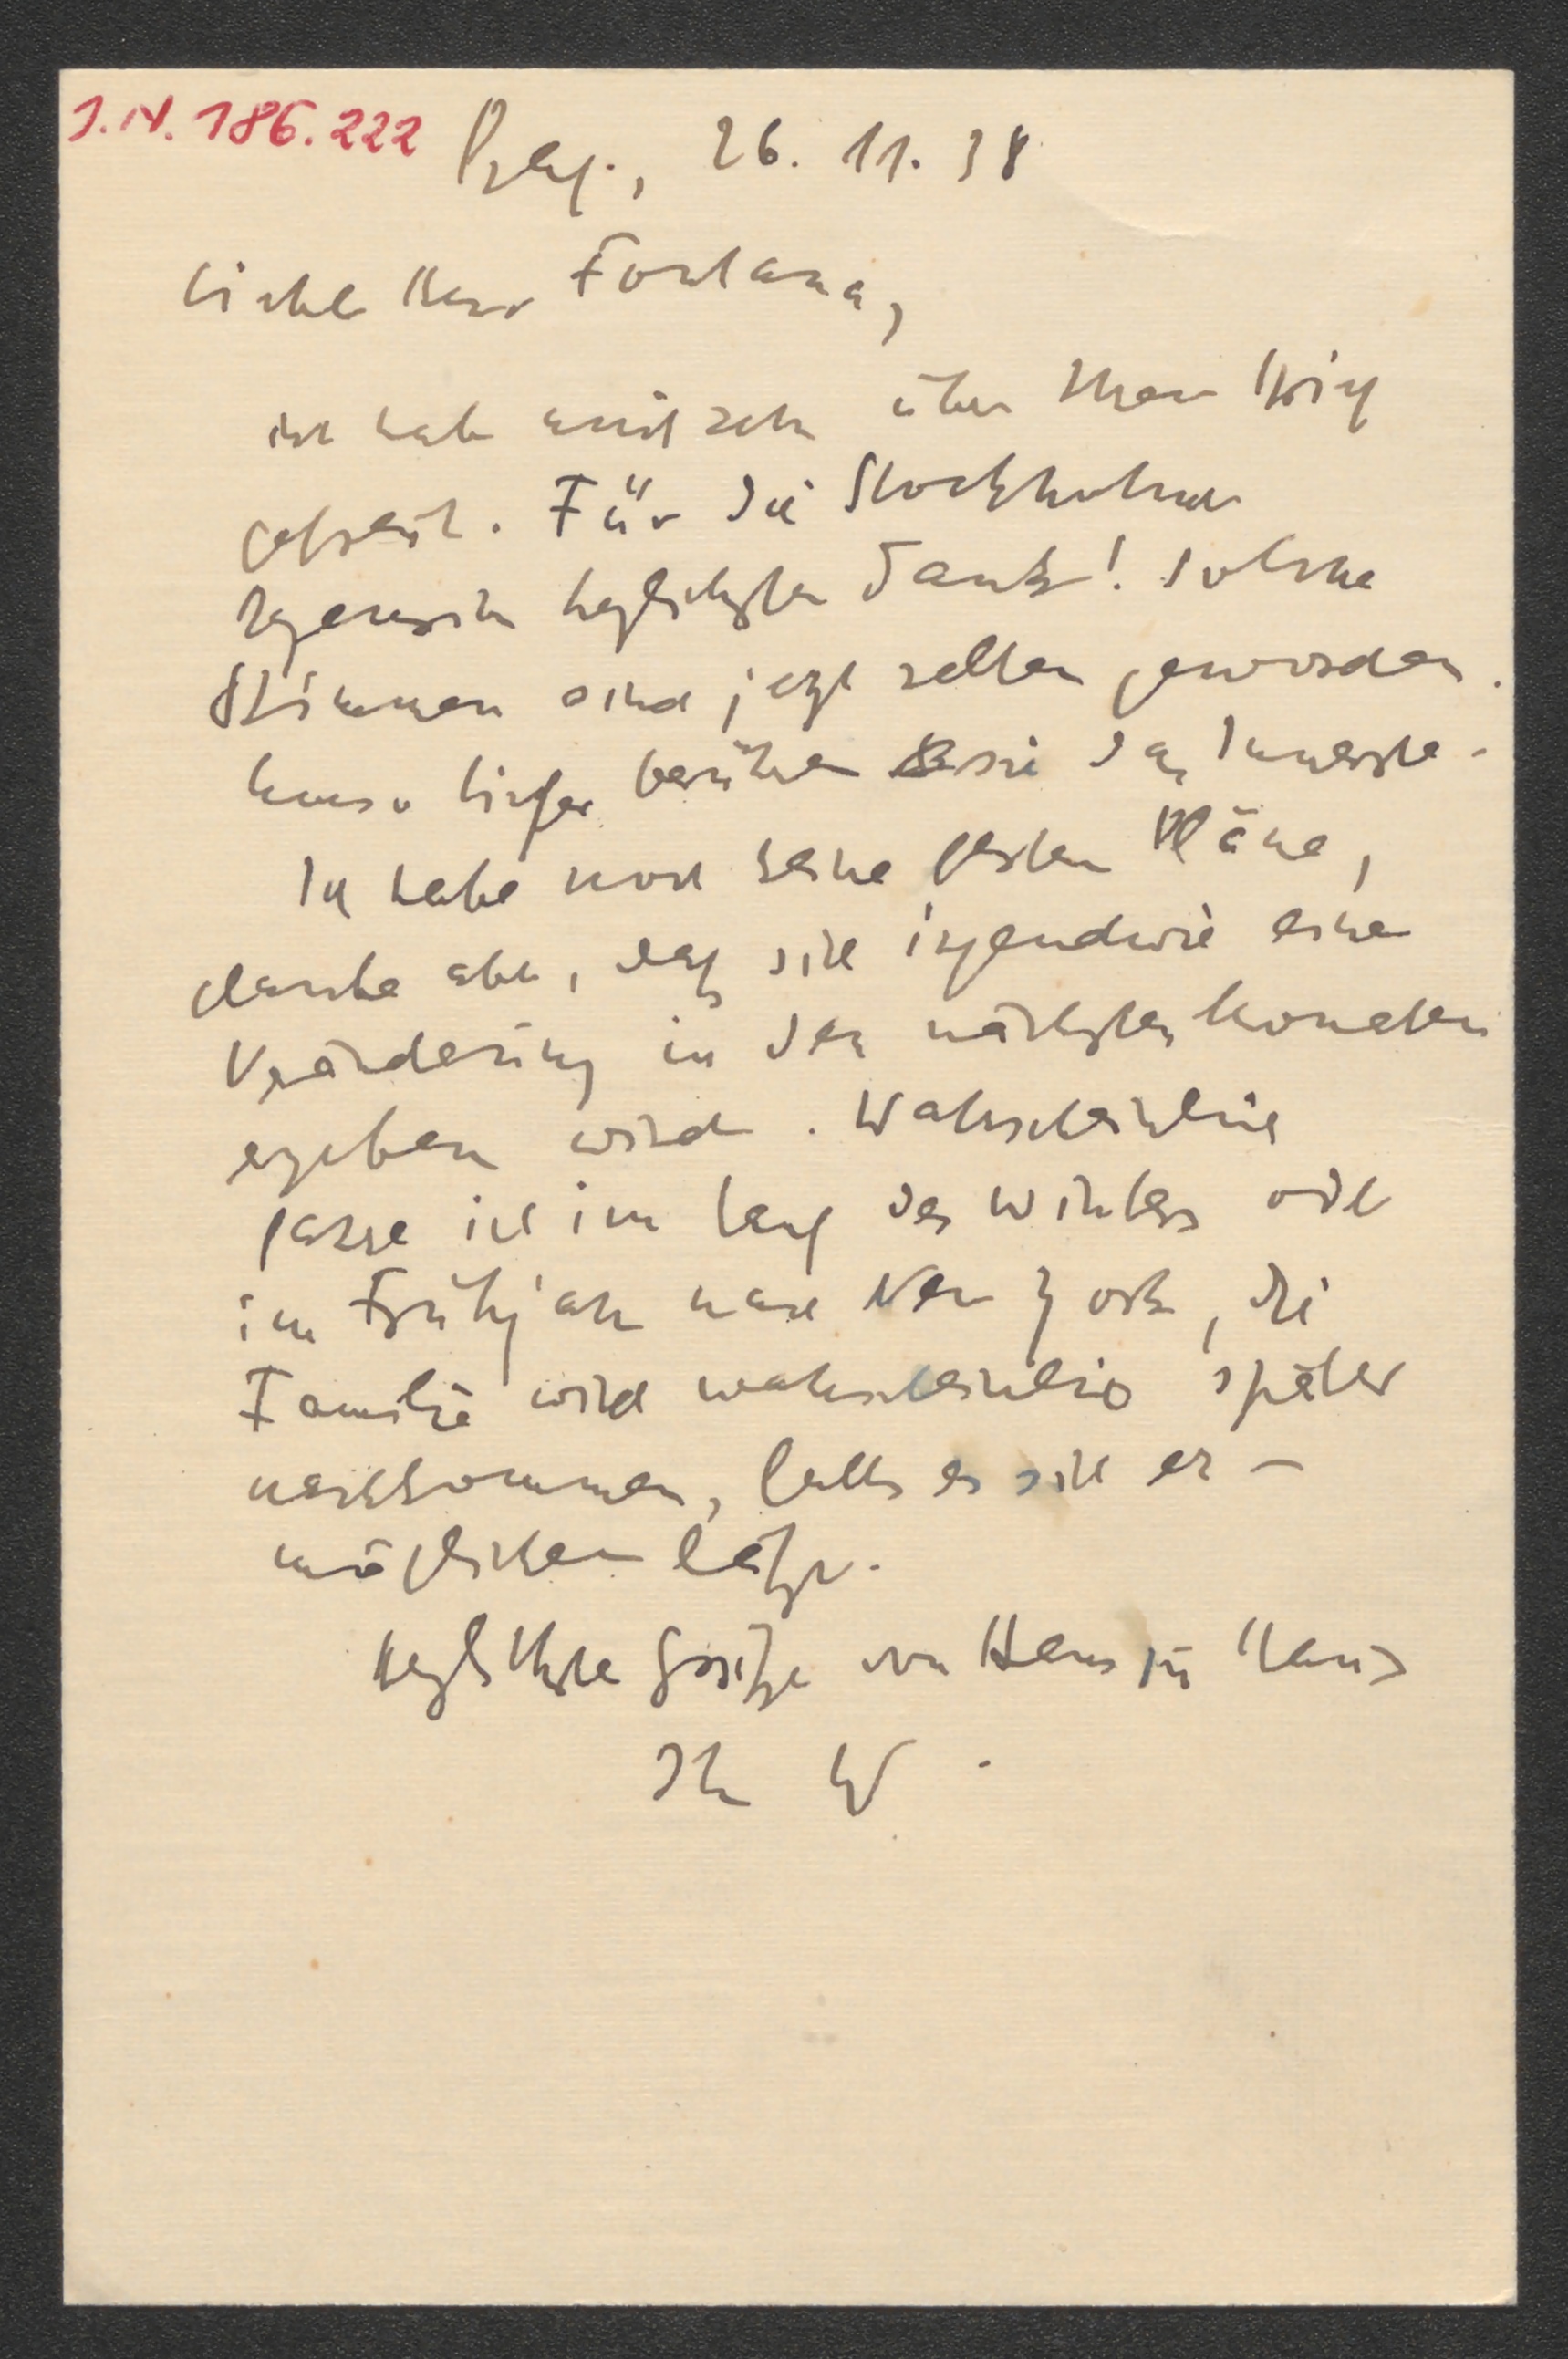 I.N. 186.222
Prag, 26. 11. 38
Lieber Herr Fontana,
ich habe mich sehr über Ihren Brief
gefreut. Für die Stockholmer
Rezension herzlichsten Dank! Solche
Stimmen sind jetzt selten geworden.
Umso tiefer berühren sie das Innerste.
Ich habe noch keine festen Pläne,
glaube aber, daß sich irgendwie eine
Veränderung in den nächsten Monaten
ergeben wird. Wahrscheinlich
fahre ich im Lauf des Winters oder
im Frühjahr nach New York, die
Familie wird wahrscheinlich später
nachkommen, falls es sich er-
möglichen läßt.
Herzlichste Grüße von Haus zu Haus
Ihr W.